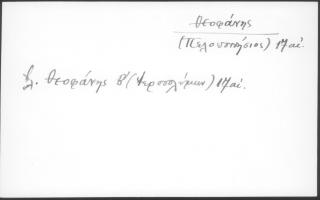 Θεοφάνης
(Πελοποννήσιος) 17 αἰ.
βλ. Θεοφάνης Β' (Ἱεροσολύμων) 17 αἰ.